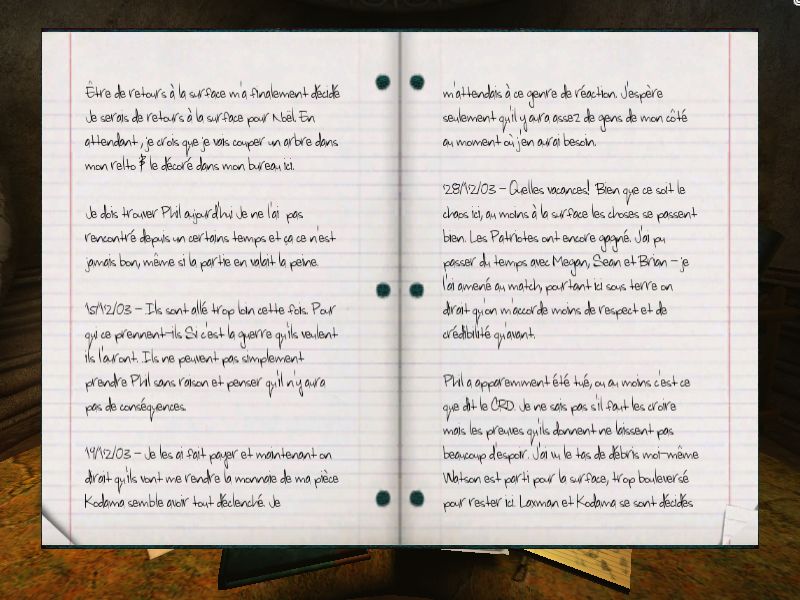 Être de retours à la surface m'a finalement décidé
Je serais de retours à la surface pour Noël. En
attendant, je crois que je vais couper un arbre dans
mon relto & le décoré dans mon bureau ici.
Je dois trouver Phil aujourd'hui Je ne l'ai pas
rencontré depuis un certains temps et ça ce n'est
jamais bon, même si la partie en valait la peine.
15/12/03 – Ils sont allé trop loin cette fois. Pour
qui ce prennent-ils Si c'est la guerre qu'ils veulent
ils l'auront. Ils ne peuvent pas simplement
prendre Phil sans raison et penser qu'il n'y aura
pas de conséquences.
19/12/03 – Je les ai fait payer et maintenant on
dirait qu'ils vont me rendre la monnaie de ma pièce
Kodama semble avoir tout déclenché. Je
m'attendais à ce genre de réaction. J'espère
seulement qu'il y aura assez de gens de mon côté
au moment où j'en aurai besoin.
28/12/03 – Quelles vacances! Bien que ce soit le
chaos ici, au moins à la surface les choses se passent
bien. Les Patriotes ont encore gagné. J'ai pu
passer du temps avec Megan, Sean et Brian – je
l'ai amené au match, pourtant ici sous terre on
dirait qu'on m'accorde moins de respect et de
crédibilité qu'avant.
Phil a apparemment été tué, ou au moins c'est ce
que dit le CRD. Je ne sais pas s'il faut les croire
mais les preuves qu'ils donnent ne laissent pas
beaucoup d'espoir. J'ai vu le tas de débris moi-même
Watson est parti pour la surface, trop bouleversé
pour rester ici. Laxman et Kodama se sont décidés